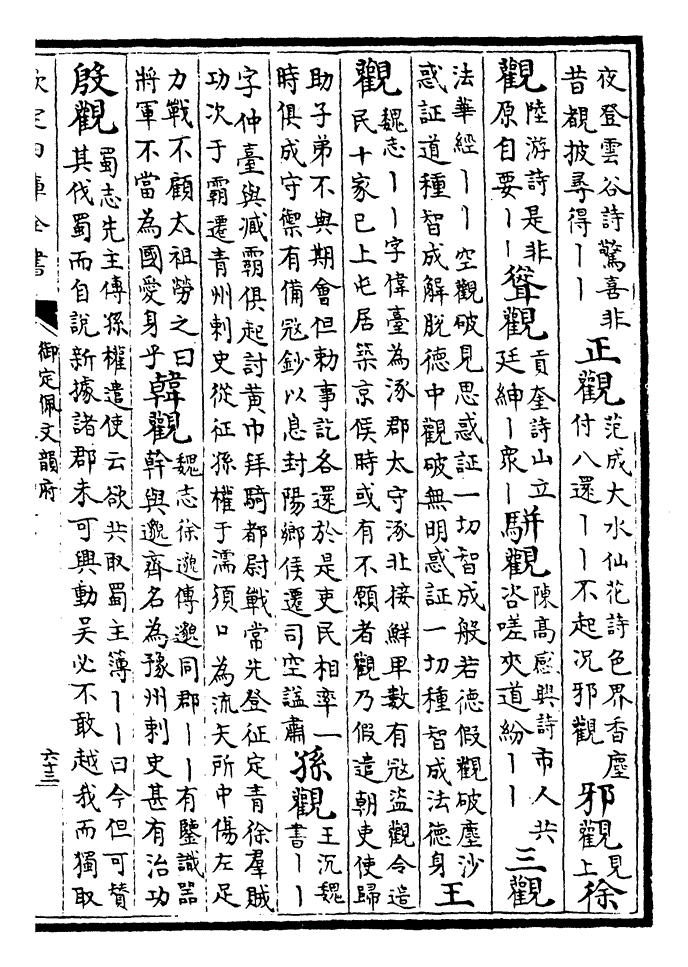 夜登雲谷詩驚喜非
昔覩披尋得丨丨
正觀
范成大水仙花詩色界香塵
付八還丨丨不起況邪觀
邪觀
見
上
徐
觀
陸游詩是非
原自要丨丨
聳觀
貢奎詩山立
廷紳丨衆丨
駢觀
陳高感興詩市人共
咨嗟夾道紛丨丨
三觀
法華經丨丨空觀破見思惑証一切智成般若德假觀破塵沙
惑証道種智成解脫德中觀破無明惑証一切種智成法德身
王
觀
魏志丨丨字偉臺為涿郡太守涿北接鮮卑數有寇盜觀令造
民十家已上屯居築京候時或有不願者觀乃假遣朝吏使歸
助子弟不與期會但勅事訖各還於是吏民相率一
時俱成守禦有備寇鈔以息封陽鄉侯遷司空諡肅
孫觀
王沉魏
書丨丨
字仲臺與臧霸俱起討黄巾拜騎都尉戰常先登征定青徐羣賊
功次于霸遷青州刺史從征孫權于濡須口為流矢所中傷左足
力戰不顧太祖勞之曰
將軍不當為國愛身乎
韓觀
魏志徐邈傳邈同郡丨丨有鑒識器
幹與邈齊名為豫州刺史甚有治功
殷觀
蜀志先主傳孫權遣使云欲共取蜀主簿丨丨曰今但可贊
其伐蜀而自說新據諸郡未可興動吳必不敢越我而獨取
欽定四庫全書
御定佩文韻府
六十三